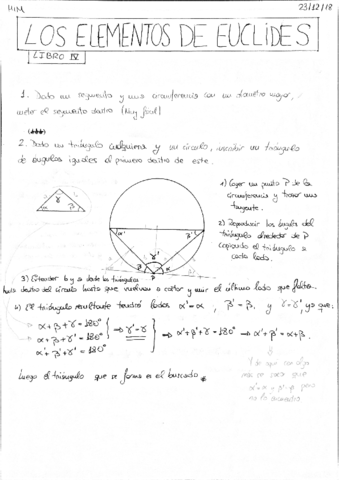 MM 23/12/18
LOS ELEMENTOS DE EUCLIDES
LIBRO IV
1. Dado un segmento y una circunferencia con un diámetro mayor,
meter el segmento dentro (Muy fácil)
2. Dado un triángulo cualquiera y un círculo, inscribir un triángulo
de ángulos iguales al primero dentro de este.
1) Coger un punto P de la
circunferencia y trazar una
tangente.
2) Reproducir los ángulos del
triángulo alrededor de P
copiando el triángulo a
cada lado.
α β γ
α' β' γ'
β γ α
P
3) Extender los lados de los triángulos
hasta dentro del círculo hasta que vuelvan a cortar y unir el último lado que falte.
4) El triángulo resultante tendrá lados α' = α, β' = β, y γ = γ', ya que:
α + β + γ = 180°
α + β + γ' = 180° ⇒ γ' = γ ⇒ α' + β' + γ = 180° ⇒ α' + β' = α + β.
α' + β' + γ' = 180°
Luego el triángulo que se forma es el buscado